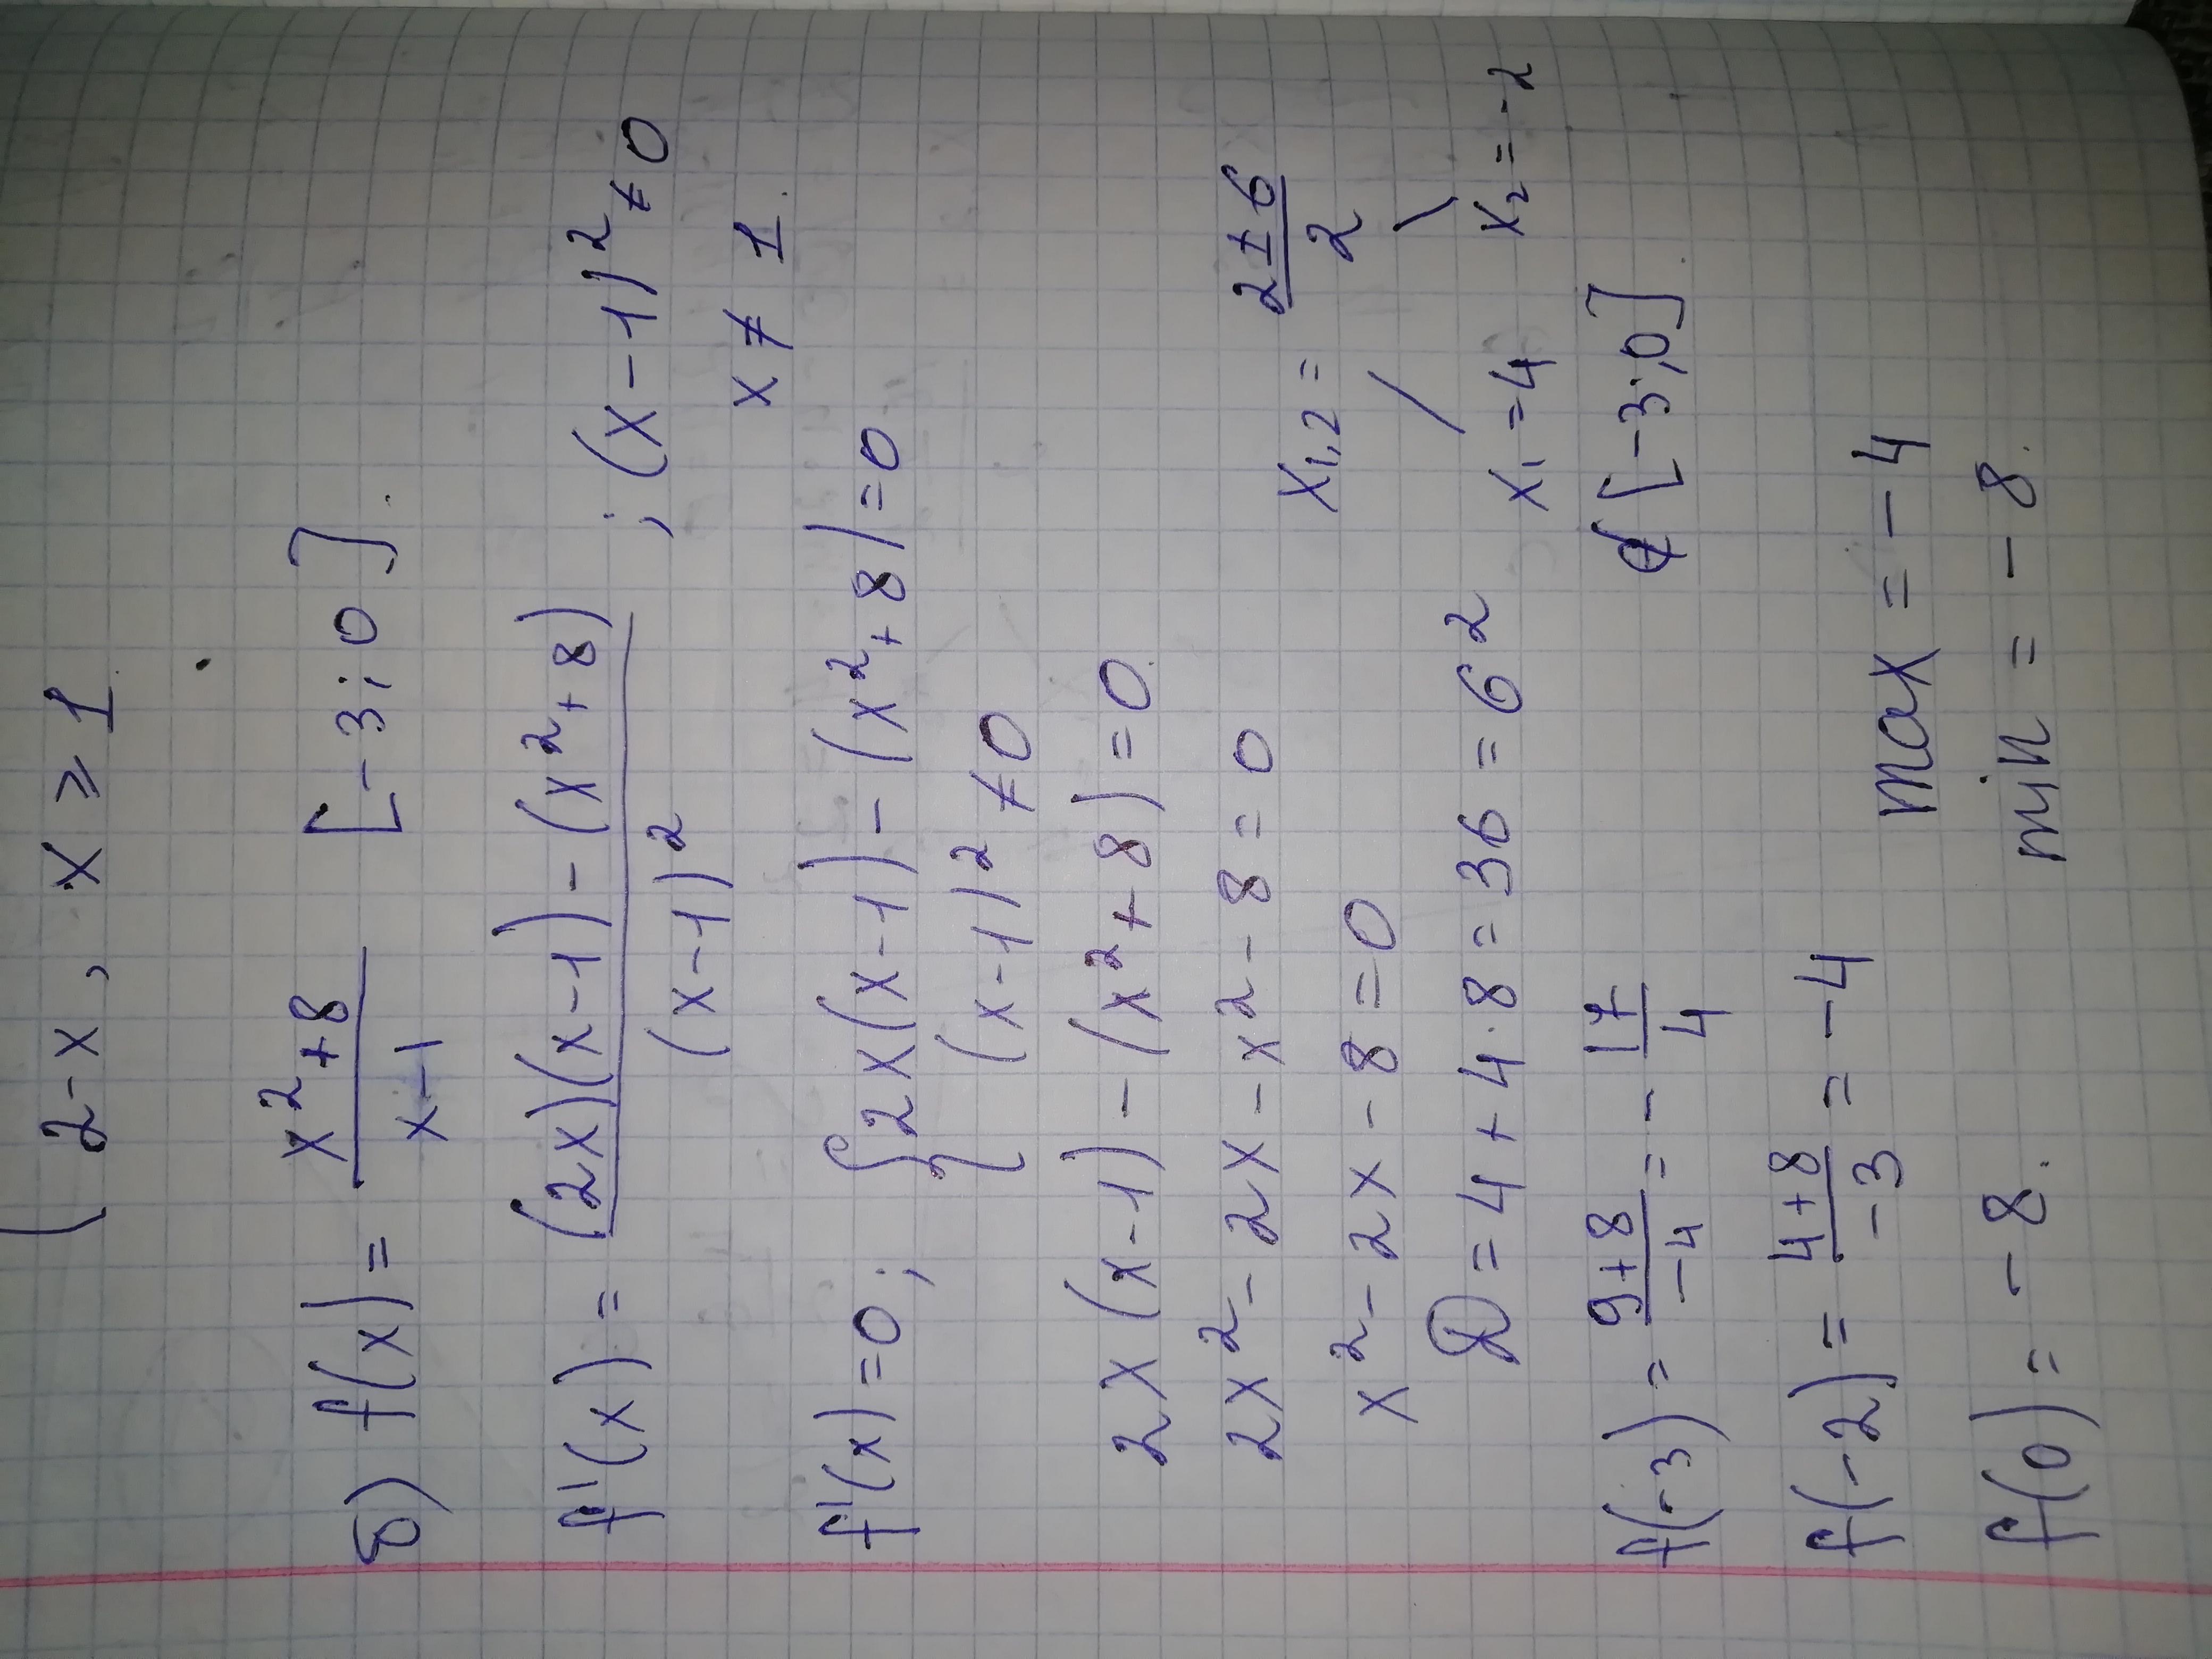 2-x, x ⩾ 1.
б) f(x) = (x²+8)/(x-1) [-3; 0].
f'(x) = ((2x)(x-1) - (x²+8))/(x-1)² ; (x-1)² ≠ 0
x ≠ 1.
f'(x) = 0 ; { 2x(x-1) - (x²+8) = 0
(x-1)² ≠ 0
2x(x-1) - (x²+8) = 0.
2x² - 2x - x² - 8 = 0
x² - 2x - 8 = 0
x₁,₂ = (2±6)/2
D = 4 + 4·8 = 36 = 6²
x₁ = 4 x₂ = -2
∉ [-3; 0].
f(-3) = (9+8)/(-4) = -17/4
f(-2) = (4+8)/(-3) = -4
f(0) = -8.
max = -4
min = -8.